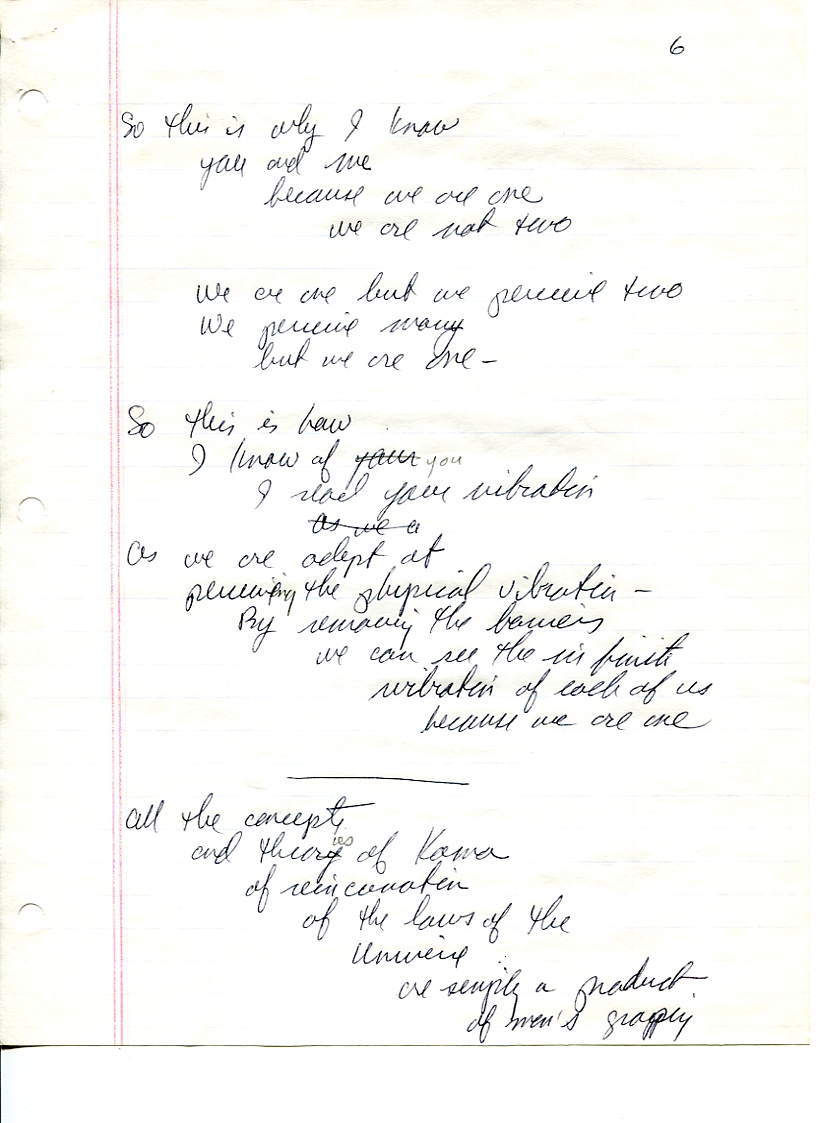 6
So this is why I know
you and me
because we are one
we are not two
We are one but we perceive two
We perceive many
but we are one –
So this is how
I know of your you
I read your vibration
As we a
As we are adept at
perceiving the physical vibration –
By removing the barriers
we can see the infinite
vibration of each of us
because we are one
All the concepts
and theories of Karma
of reincarnation
of the laws of the
Universe
are simply a product
of men's grasping